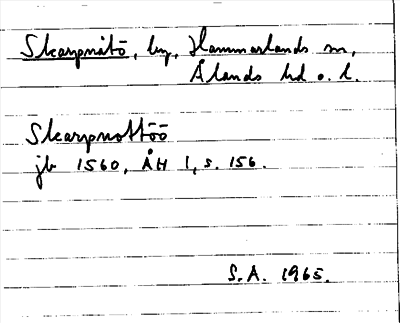 Skarpnåtö, by, Hammarlands sn,
Ålands hd o. l.
Skarpnottöö
jb 1560, ÅH 1, s. 156.
S.A. 1965.